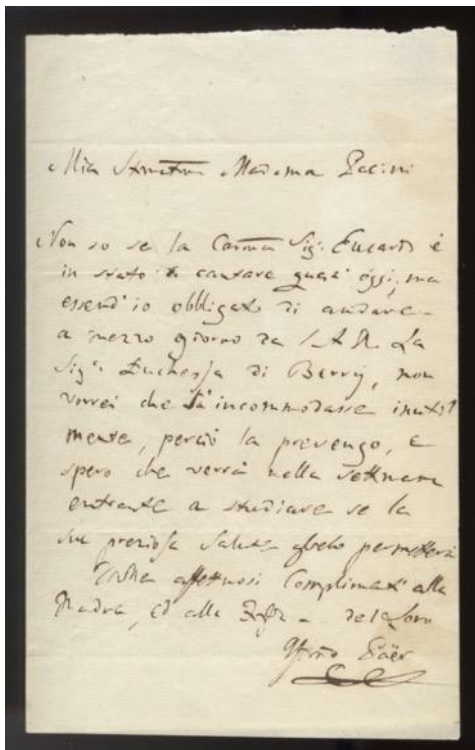 Mia Stimatma Madama Pacini
Non so se la Carma Sig.a è
in stato di cantare quest'oggi, ma
essend'io obbligato di andare
a mezzo giorno da S.A.R. La
Sig.a Duchessa di Berry, non
vorrei che s'incommodasse inutil
mente, perciò la prevengo, e
spero che verrà nella settimana
entrante a studiare se la
sua preziosa salute glielo permetterà
affettuosi Complimenti alla
Madre, ed alla del Loro
Paër